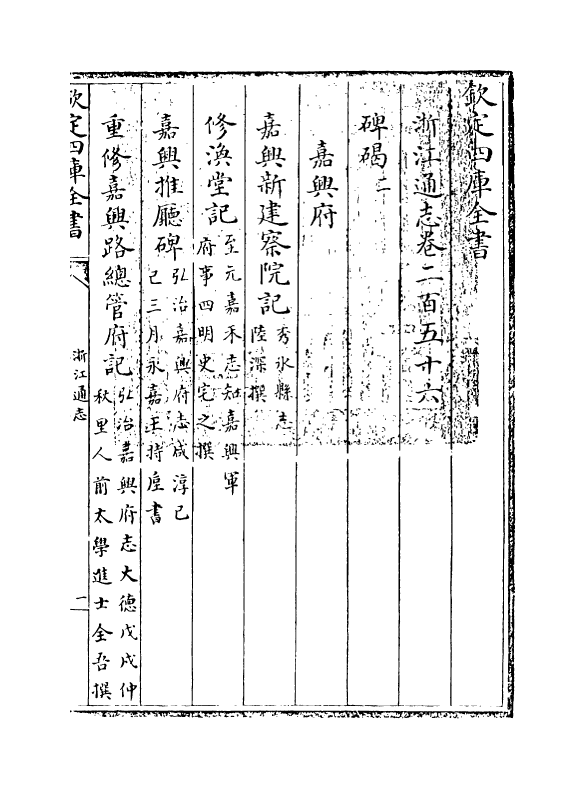 欽定四庫全書
浙江通志卷二百五十六
碑碣二
嘉興府
嘉興新建察院記秀水縣志
陸深撰
修渙堂記至元嘉禾志知嘉興軍
府事四明史宅之撰
嘉興推廳碑弘治嘉興府志咸淳己
巳三月永嘉王持垕書
重修嘉興路總管府記弘治嘉興府志大德戊戌仲
秋里人前太學進士全吾撰
欽定四庫全書
浙江通志